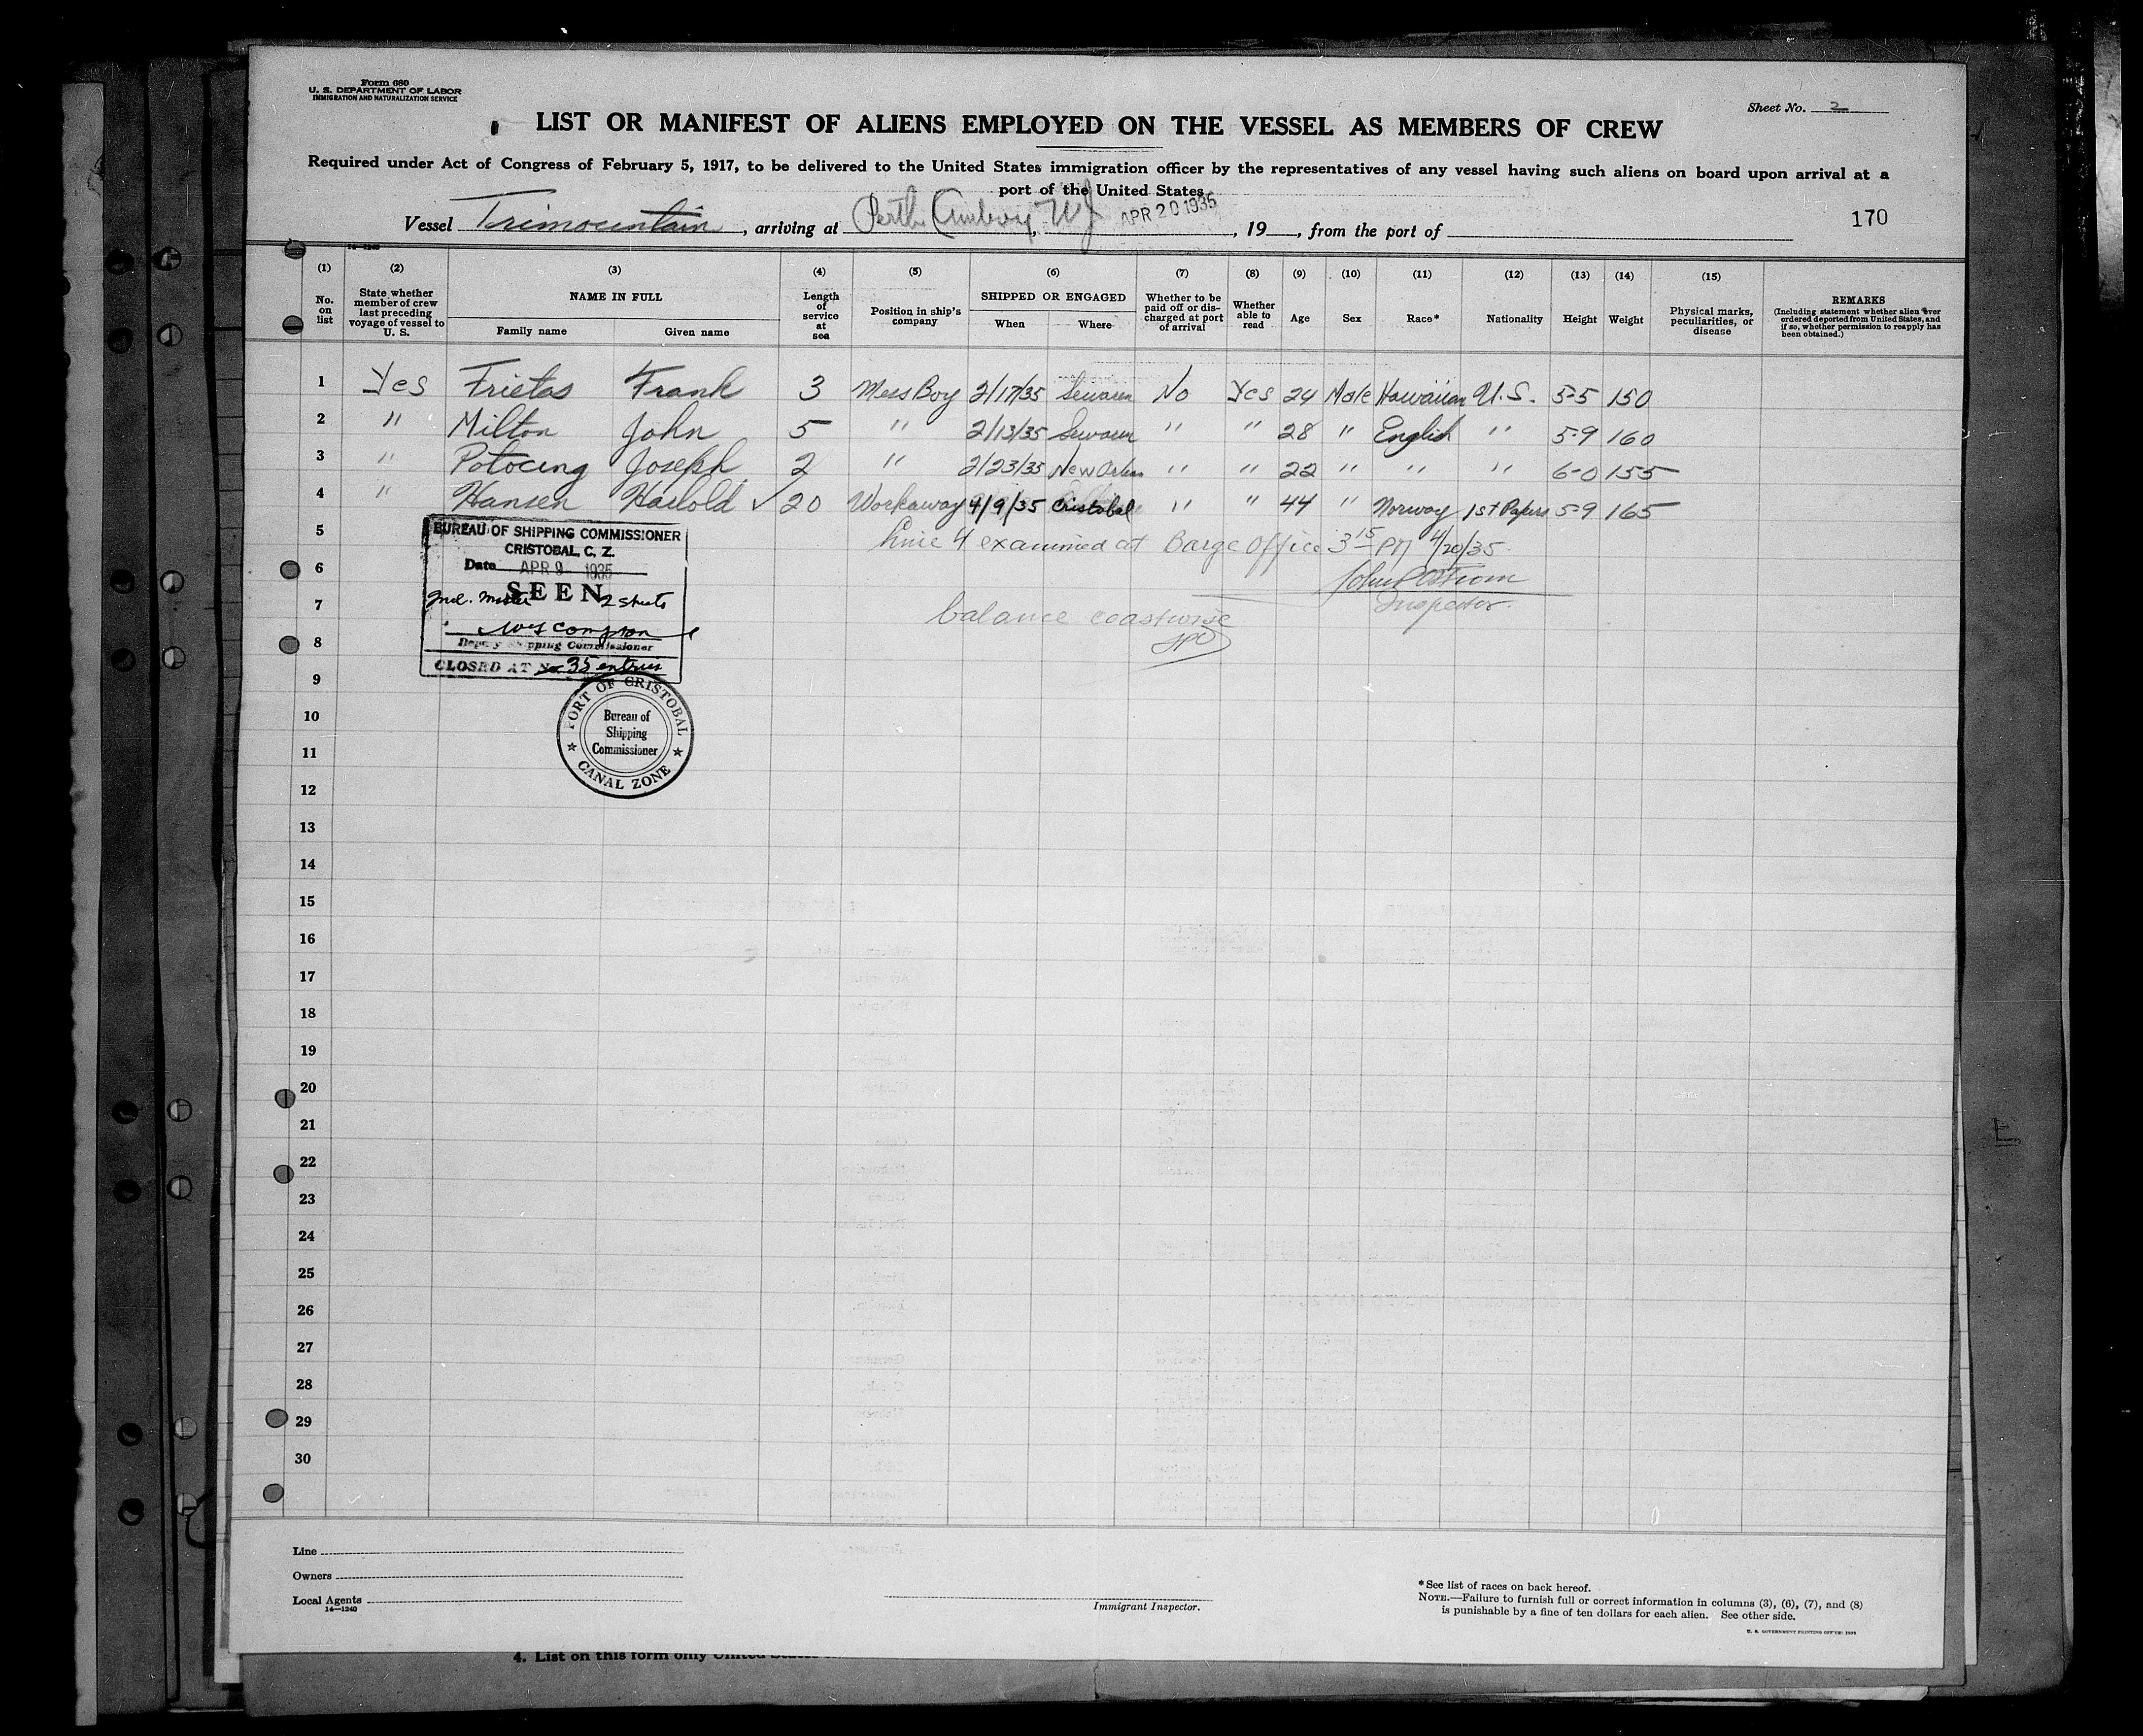 Form 680
U. S. DEPARTMENT OF LABOR
IMMIGRATION AND NATURALIZATION SERVICE
Sheet No. 2
LIST OR MANIFEST OF ALIENS EMPLOYED ON THE VESSEL AS MEMBERS OF CREW
Required under Act of Congress of February 5, 1917, to be delivered to the United States immigration officer by the representatives of any vessel having such aliens on board upon arrival at a
port of the United States
Vessel Trimountain, arriving at Perth Amboy, N J APR 20 1935, 19 , from the port of
170
14—1240
(1) (2) (3) (4) (5) (6) (7) (8) (9) (10) (11) (12) (13) (14) (15)
No. on list
State whether member of crew last preceding voyage of vessel to U. S.
NAME IN FULL
Family name Given name
Length of service at sea
Position in ship's company
SHIPPED OR ENGAGED
When Where
Whether to be paid off or discharged at port of arrival
Whether able to read
Age
Sex
Race*
Nationality
Height
Weight
Physical marks, peculiarities, or disease
REMARKS
(Including statement whether alien ever ordered deported from United States, and if so, whether permission to reapply has been obtained.)
1 Yes Frietas Frank 3 Mess Boy 2/17/35 Sewaren No Yes 24 Male Hawaiian U.S. 5-5 150
2 " Milton John 5 " 2/13/35 Sewaren " " 28 " English " 5-9 160
3 " Potocing Joseph 2 " 2/23/35 New Orleans " " 22 " " " 6-0 155
4 " Hansen Harlold ✓ 20 Workaway 4/9/35 Cristobal " " 44 " Norway 1st Papers 5-9 165
5 Line 4 examined at Barge Office 3 15 PM 4/20/35
6 Inspector
7 balance coastwise
8 JPO
BUREAU OF SHIPPING COMMISSIONER
CRISTOBAL, C. Z.
Date APR 9 - 1935
SEEN
Incl. Master 2 sheets
Compton
Deputy Shipping Commissioner
CLOSED AT No 35 entries
PORT OF CRISTOBAL
Bureau of
Shipping
Commissioner
CANAL ZONE
9
10
11
12
13
14
15
16
17
18
19
20
21
22
23
24
25
26
27
28
29
30
Line
Owners
Local Agents
14—1240
Immigrant Inspector.
*See list of races on back hereof.
NOTE.—Failure to furnish full or correct information in columns (3), (6), (7), and (8)
is punishable by a fine of ten dollars for each alien. See other side.
U. S. GOVERNMENT PRINTING OFFICE:
4. List on this form only United States